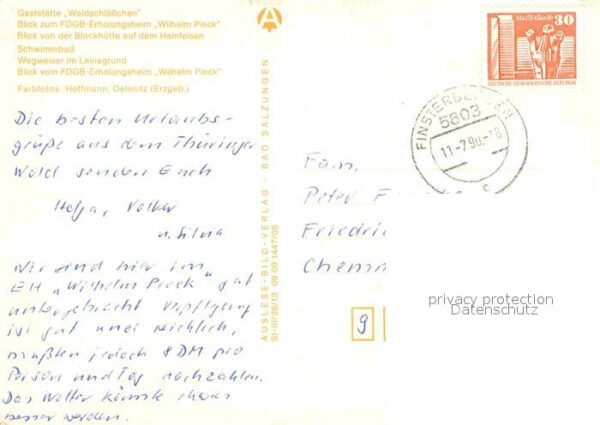 Gaststätte „Waldschlößchen"
Blick zum FDGB-Erholungsheim „Wilhelm Pieck"
Blick von der Blockhütte auf dem Hainfelsen
Schwimmbad
Wegweiser im Leinagrund
Blick vom FDGB-Erholungsheim „Wilhelm Pieck"
Farbfotos: Hoffmann, Oelsnitz (Erzgeb.)
Die besten Urlaubs-
grüße aus dem Thüringer
Wald senden Euch
Helga, Volker
u. Silva
Wir sind hier im
EH „Wilhelm Pieck" gut
untergebracht Verpflegung
ist gut und reichlich,
mußten jedoch 8 DM pro
Person und Tag nachzahlen.
Das Wetter könnte etwas
besser werden.
A
AUSLESE-BILD-VERLAG · BAD SALZUNGEN
St-III/26/13 09 09 1447/05
30
DEUTSCHE DEMOKRATISCHE REPUBLIK
FINSTERBERGEN
5803
11-7.90.-18
c
Fam.
Peter F
Friedric
Chemn
9
privacy protection
Datenschutz